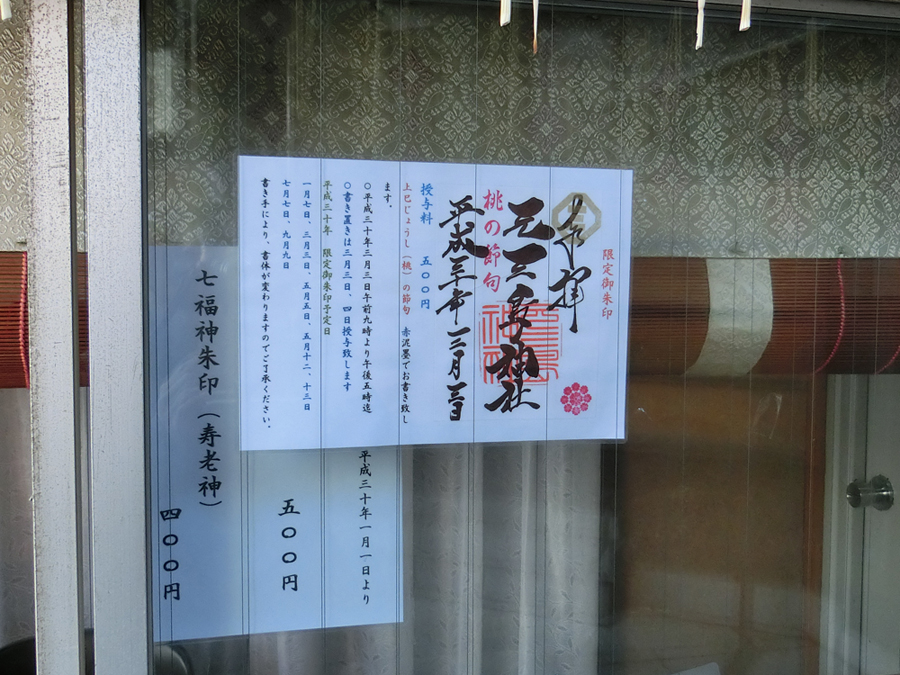 限定御朱印
奉拝
元三島神社
桃の節句
平成三十年三月三日
授与料　五〇〇円
上巳じょうし（桃）の節句　赤泥墨でお書き致し
ます。
〇平成三十年三月三日午前九時より午後五時迄
〇書き置きは三月三日、四日授与致します
平成三十年　限定御朱印予定日
一月七日、三月三日、五月五日、五月十二、十三日
七月七日、九月九日
書き手により、書体が変わりますのでご了承ください。
平成三十年一月一日より
五〇〇円
七福神朱印（寿老神）
四〇〇円